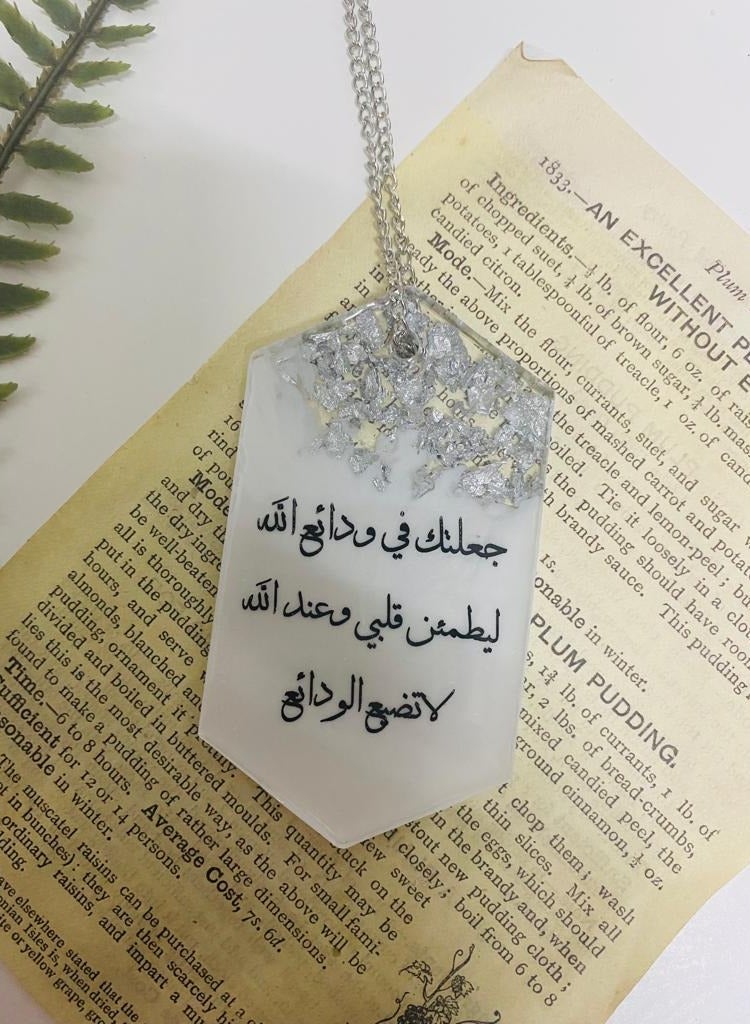 جعلتك في ودائع الله
ليطمئن قلبي وعند الله
لا تضيع الودائع
1833.—AN EXCELLENT
WITHOUT
Ingredients.—¼ lb. of flour, 6 oz. of
of chopped suet, ¼ lb. of brown sugar, ¼ lb. mas
potatoes, 1 tablespoonful of treacle, 1 oz. of can
candied citron.
Mode.—Mix the flour, currants, suet, and sugar
the above proportions of mashed carrot and potat
the treacle and lemon-peel;
Tie it loosely in a clo
the pudding should have roo
brandy sauce. This pudding
in winter.
PLUM PUDDING.
lb. of currants, 1 lb. of
2 lbs. of bread-crumbs,
mixed candied peel, the
ground cinnamon, ½ oz.
chop them; wash
thin slices. Mix all
the eggs, which should
in the brandy and, when
stout new pudding cloth;
closely; boil from 6 to 8
Mode
and dry
the dry ingre
be well-beate
all is thoroughly
put in the pudding
hours, and serve
almonds, blanched
pudding, ornament it
divided and boiled in buttered moulds. This quantity may be
lies this is the most desirable way, as the above will be
found to make a pudding of rather large dimensions.
Time.—6 to 8 hours. Average Cost, 7s. 6d.
Sufficient for 12 or 14 persons.
in winter.
The muscatel raisins can be purchased at a
in bunches): they are then scarcely
ordinary raisins, and impart a
elsewhere stated that the
Isles is, when dried
or yellow grape,